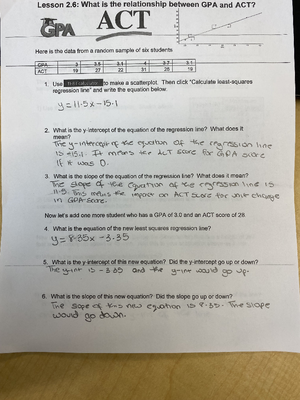 Lesson 2.6: What is the relationship between GPA and ACT?
GPA
ACT
Here is the data from a random sample of six students
GPA 3 3.5 3.1 4 3.7 3.1
ACT 19 27 22 31 28 19
1. Use to make a scatterplot. Then click "Calculate least-squares
regression line" and write the equation below.
y = 11.5x - 15.1
2. What is the y-intercept of the equation of the regression line? What does it
mean?
The y-intercept of the equation of the regression line
is -15.1. It means the ACT score for GPA score
if it was 0.
3. What is the slope of the equation of the regression line? What does it mean?
The slope of the equation of the regression line is
11.5. This means the impact on ACT score for unit change
in GPA score.
Now let's add one more student who has a GPA of 3.0 and an ACT score of 28.
4. What is the equation of the new least squares regression line?
y = 8.35x - 3.35
5. What is the y-intercept of this new equation? Did the y-intercept go up or down?
The y-int is -3.35 and the y-int would go up.
6. What is the slope of this new equation? Did the slope go up or down?
The slope of this new equation is 8.35. The slope
would go down.